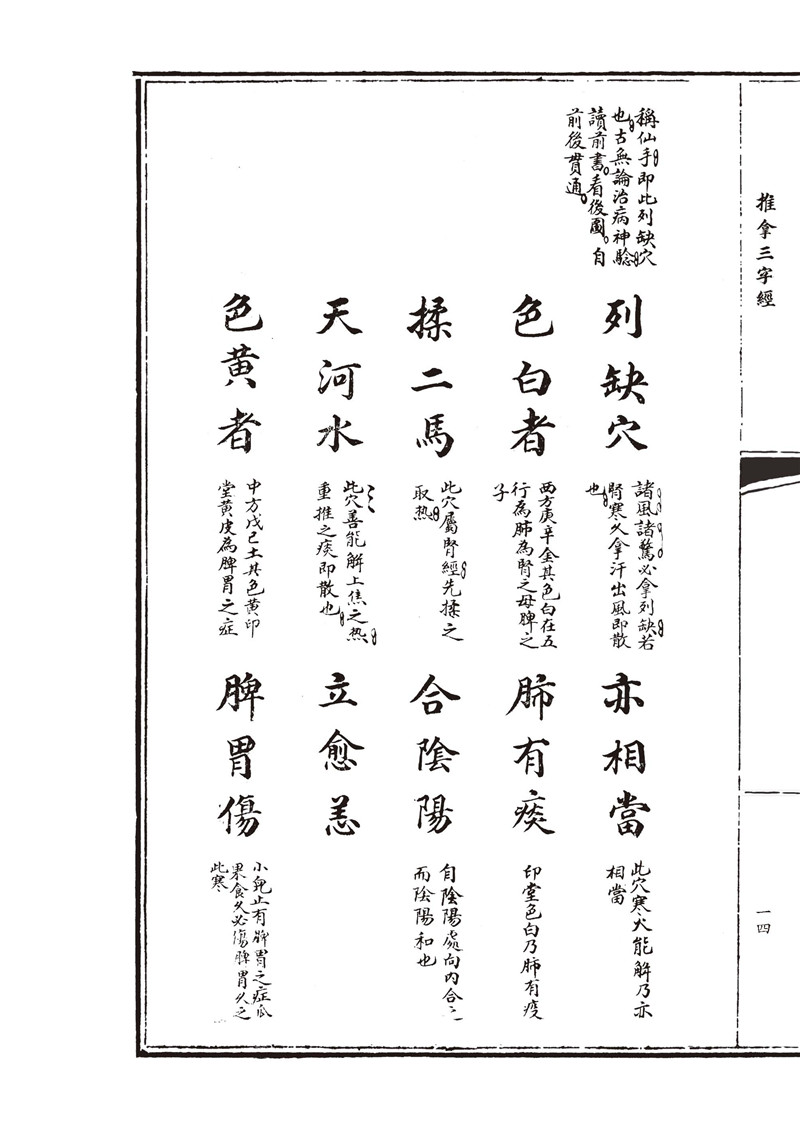 推拿三字經
稱仙手即此列缺穴
也古無論治病神驗
讀前書看後圖自
前後貫通
列缺穴
諸風諸驚必拿列缺若
腎寒久拿汗出風即散
也
亦相當
此穴寒火能解乃亦
相當
色白者
西方庚辛金其色白在五
行為肺為腎之母脾之
子
肺有痰
印堂色白乃肺有痰
揉二馬
此穴屬腎經先揉之
取热
合陰陽
自陰陽處向内合之
而陰陽和也
天河水
此穴善能解上焦之热
重推之痰即散也
立愈恙
色黃者
中方戊己土其色黃印
堂黃皮為脾胃之症
脾胃傷
小兒止有脾胃之症瓜
果食久必傷脾胃久之
此寒
一四